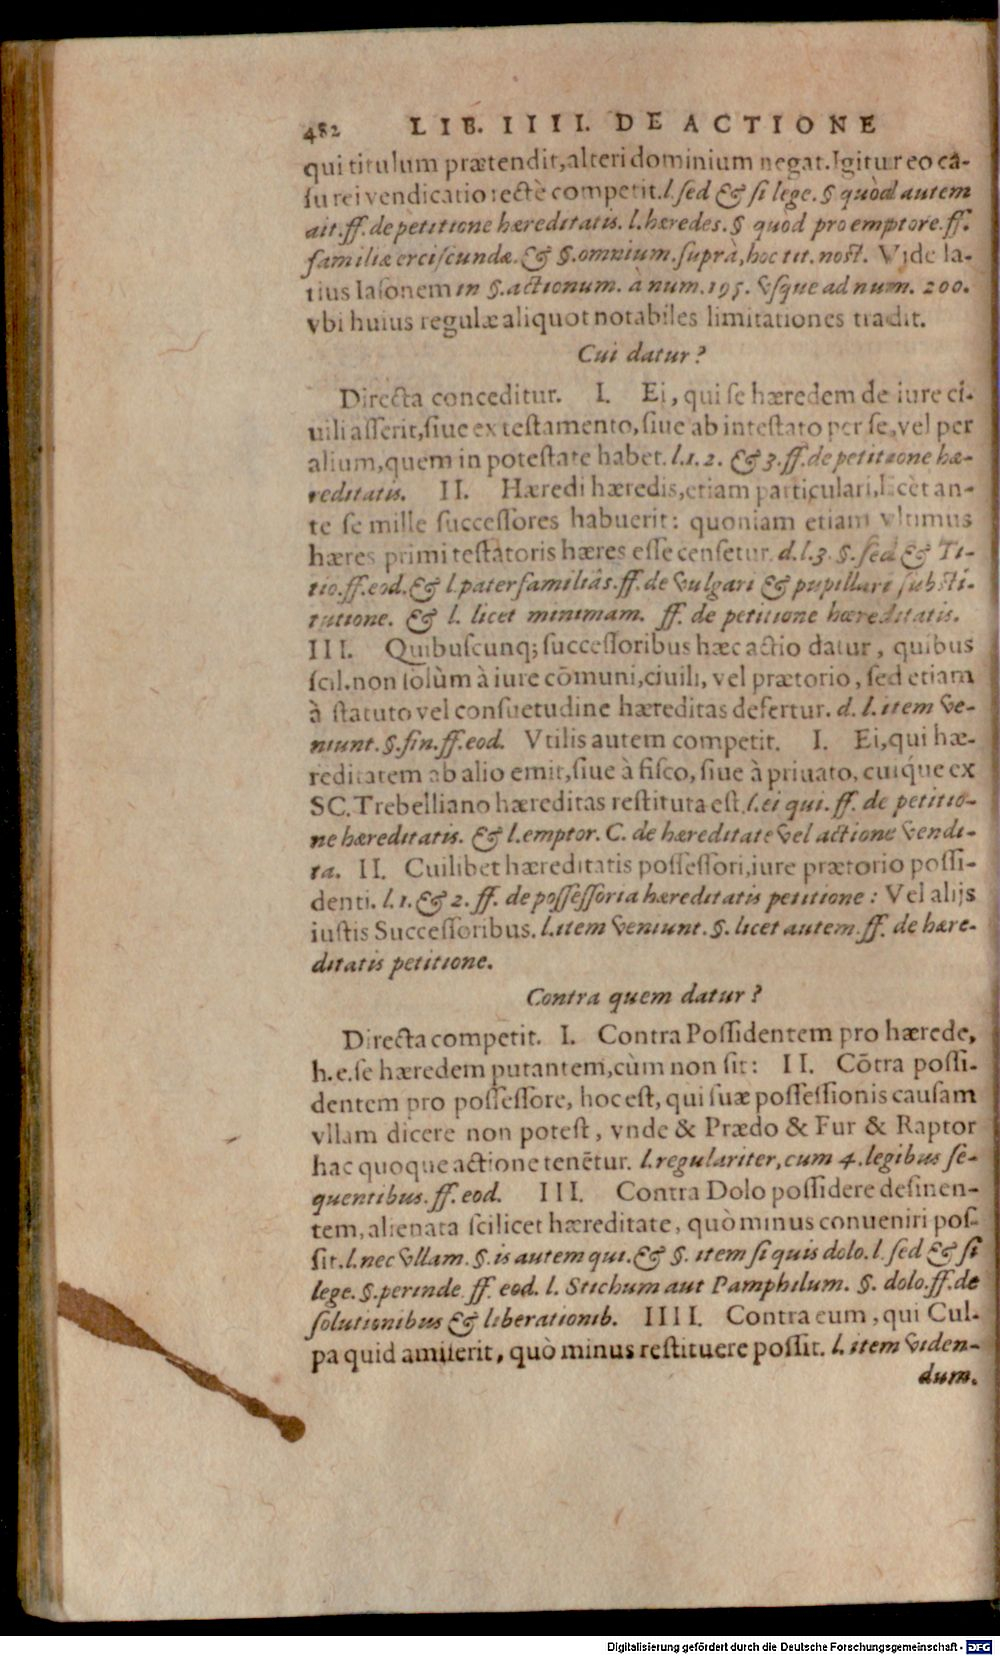 482 LIB. IIII. DE ACTIONE
qui titulum prætendit, alteri dominium negat. Igitur eo ca-
su rei vendicatio rectè competit. l. sed & si lege. § quòd autem
ait. ff. de petitione hæreditatis. l. hæredes. § quòd pro emptore. ff.
familiæ erciscundæ. & §. omnium. suprà, hoc tit. nost. Vide la-
tius Iasonem in §. actionum. à num. 195. vsque ad num. 200.
vbi huius regulæ aliquot notabiles limitationes tradit.
Cui datur?
Directa conceditur. I. Ei, qui se hæredem de iure ci-
uili asserit, siue ex testamento, siue ab intestato per se, vel per
alium, quem in potestate habet. l. 1. 2. & 3. ff. de petitione hæ-
reditatis. II. Hæredi hæredis, etiam particulari, licèt an-
te se mille successores habuerit: quoniam etiam vltimus
hæres primi testatoris hæres esse censetur. d. l. 3. §. sed & Ti-
tio. ff. eod. & l. paterfamiliâs. ff. de vulgari & pupillari substi-
tutione. & l. licet minimam. ff. de petitione hæreditatis.
III. Quibuscunq; successoribus hæc actio datur, quibus
scil. non solùm à iure cõmuni, ciuili, vel prætorio, sed etiam
à statuto vel consuetudine hæreditas defertur. d. l. item ve-
niunt. §. fin. ff. eod. Vtilis autem competit. I. Ei, qui hæ-
reditatem ab alio emit, siue à fisco, siue à priuato, cuiq́ue ex
SC. Trebelliano hæreditas restituta est. l. ei qui. ff. de petitio-
ne hæreditatis. & l. emptor. C. de hæreditate vel actione vendi-
ta. II. Cuilibet hæreditatis possessori, iure prætorio possi-
denti. l. 1. & 2. ff. de possessoria hæreditatis petitione: Vel alijs
iustis Successoribus. l. item veniunt. §. licet autem. ff. de hære-
ditatis petitione.
Contra quem datur?
Directa competit. I. Contra Possidentem pro hærede,
h. e. se hæredem putantem, cùm non sit: II. Cõtra possi-
dentem pro possessore, hoc est, qui suæ possessionis causam
vllam dicere non potest, vnde & Prædo & Fur & Raptor
hac quoque actione tenẽtur. l. regulariter, cum 4. legibus se-
quentibus. ff. eod. III. Contra Dolo possidere desinen-
tem, alienata scilicet hæreditate, quò minus conueniri pos-
sit. l. nec vllam. §. is autem qui. & §. item si quis dolo. l. sed & si
lege. §. perinde. ff. eod. l. Stichum aut Pamphilum. §. dolo. ff. de
solutionibus & liberationib. IIII. Contra eum, qui Cul-
pa quid amiserit, quò minus restituere possit. l. item viden-
dum.
Digitalisierung gefördert durch die Deutsche Forschungsgemeinschaft - DFG